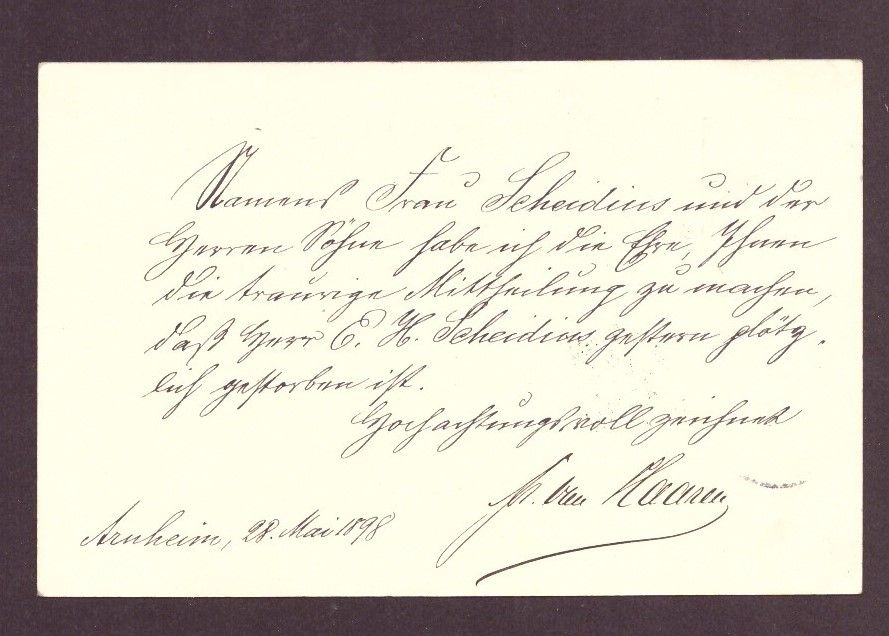 Namens Frau Scheidius und der
Herren Söhne habe ich die Ehre, Ihnen
die traurige Mittheilung zu machen,
daß Herr E. H. Scheidius gestern plötz-
lich gestorben ist.
Hochachtungsvoll zeichnet
van Haaren
Arnheim, 28. Mai 1898